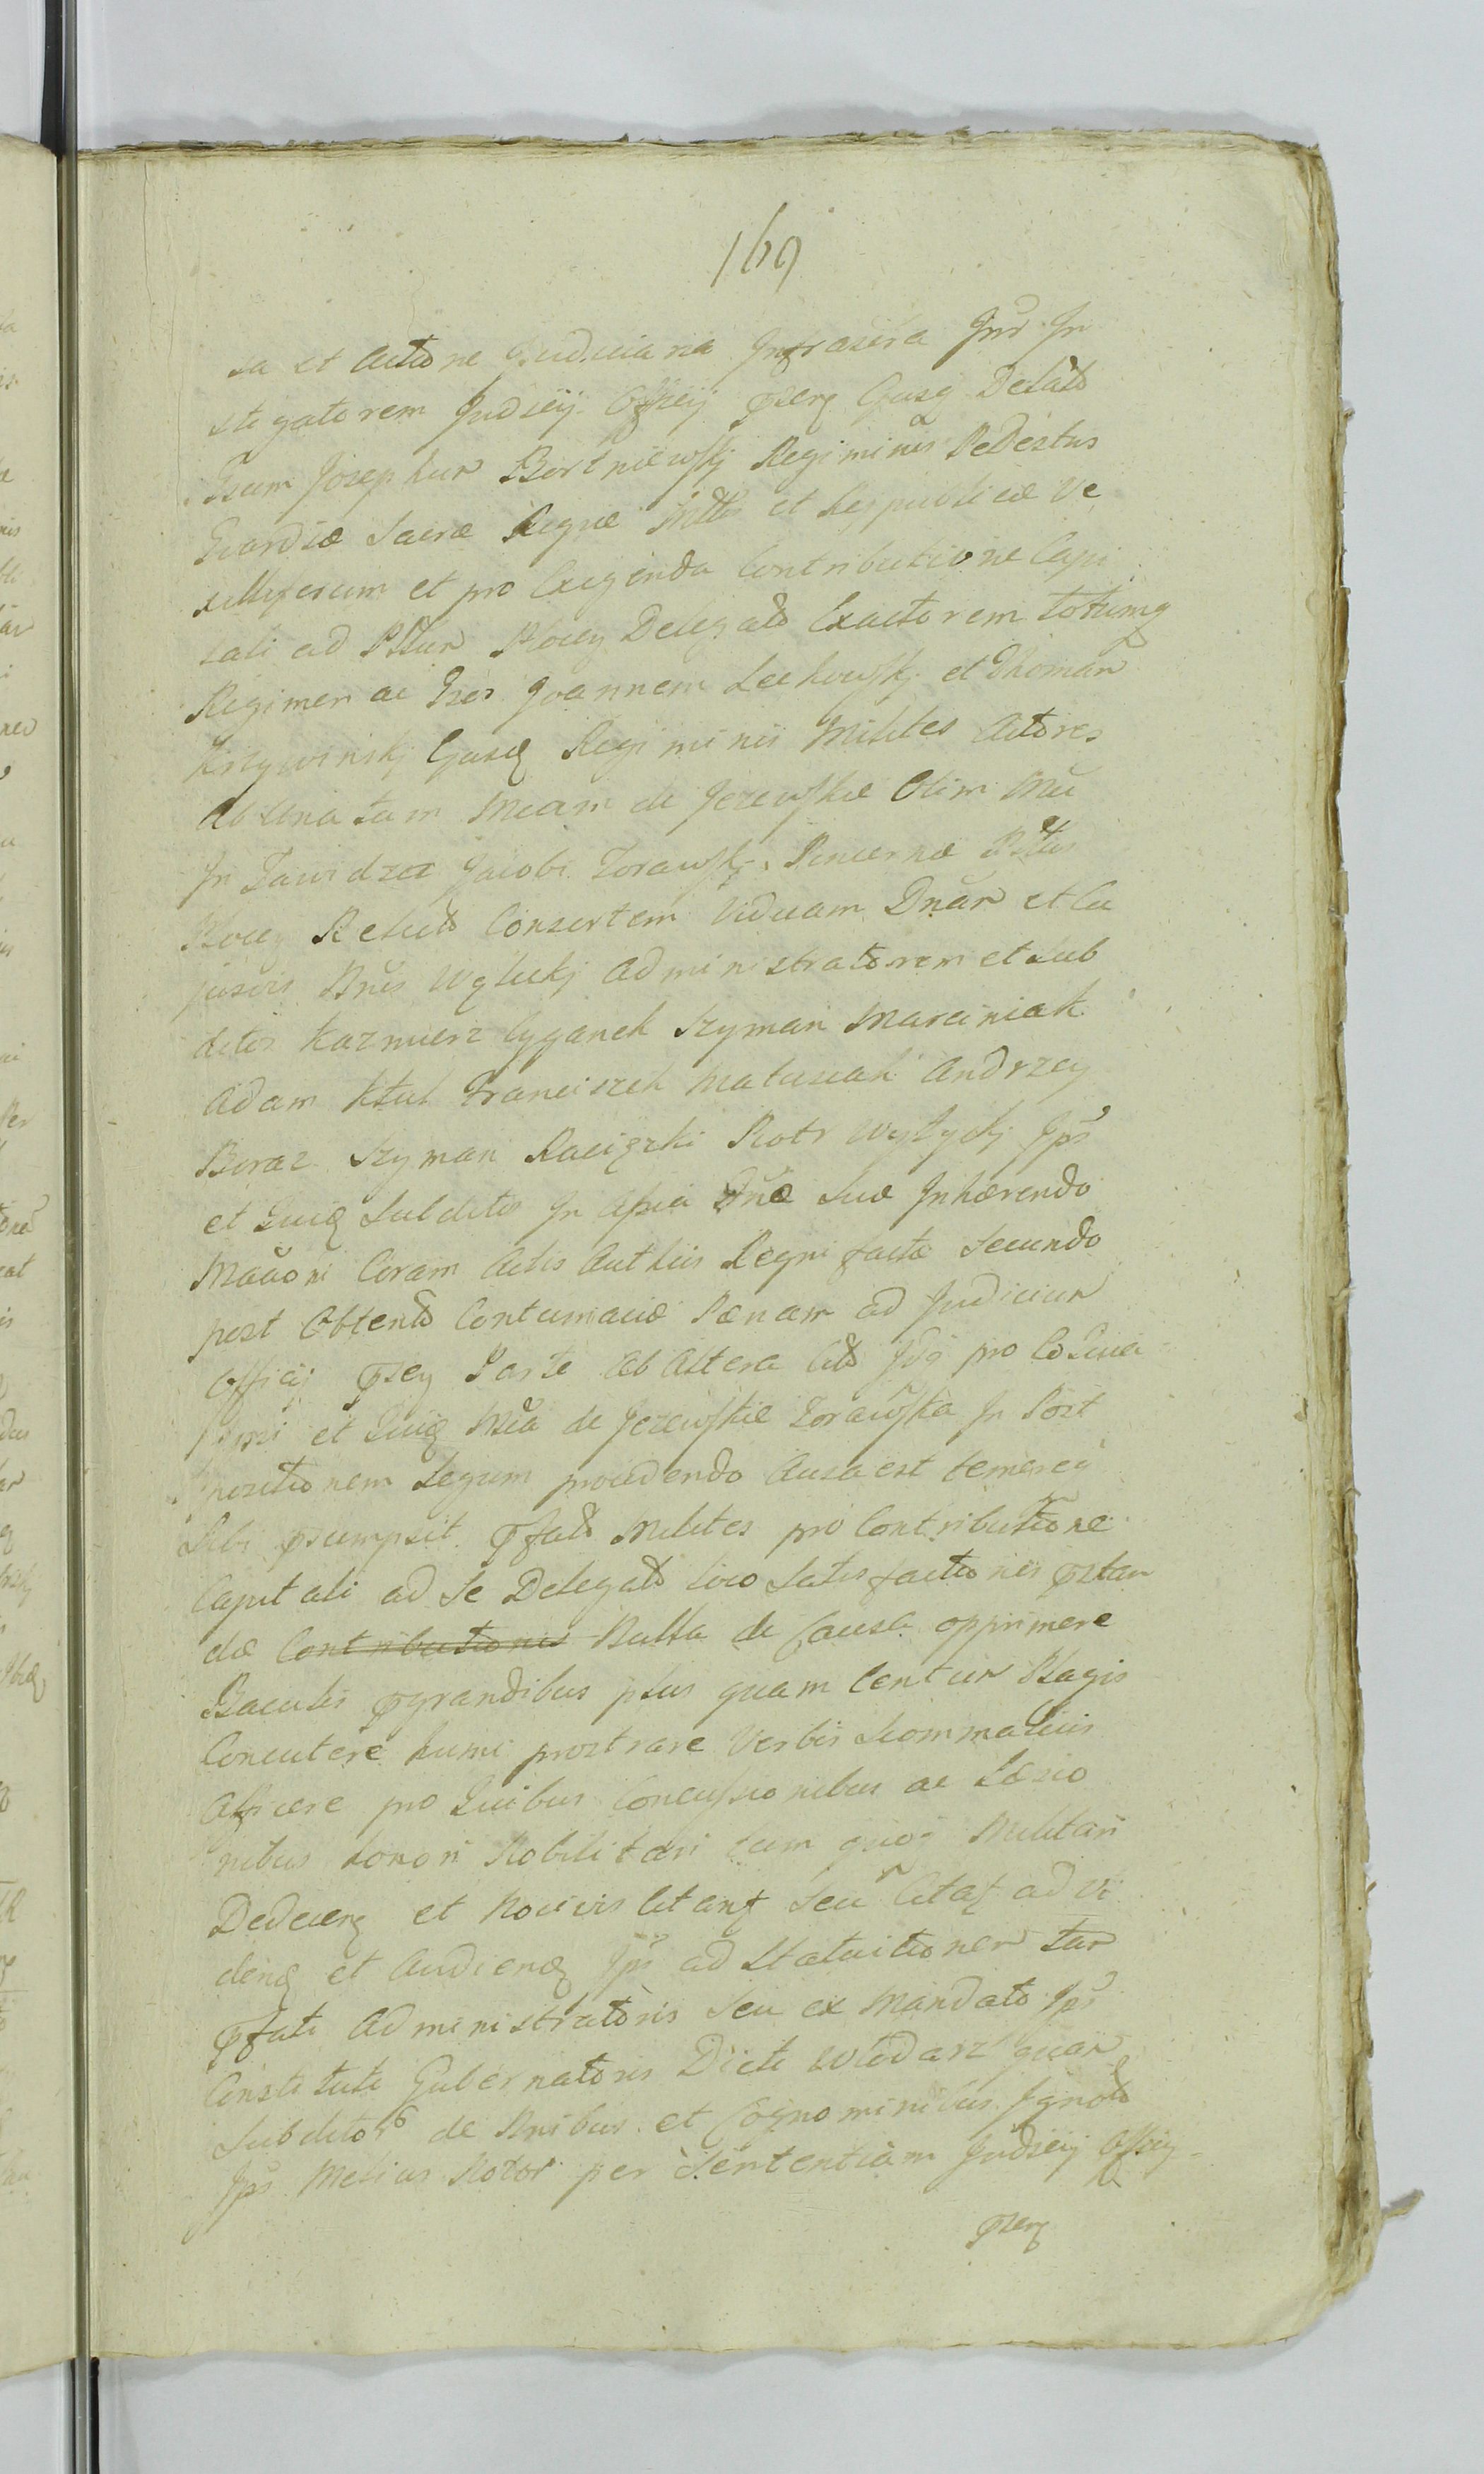 169
sa et Actione Judiciaria Infrascra Inr. In
stigatorem Judicij Officij psen Ejusq Delato
Gsum Josephum Bortniewskj Regiminis Pedestris
Gvardiæ Sacræ Regiæ Mttis et Reipublicæ Ve
xilliferum et pro Exigenda Contributione Capi
tali ad Pttum Delegatõ Exactorem totumq
Regimen ac Gsos Joannem Lechowskj et Thomam
Krzywinskj Ejusd Regiminis Milites Actores
Ab Una tam Mcam de Jezewskie Olim Mci
In Zawidza Jacobi Zorawskj Pincernæ Pttus
Relictõ Consortem Viduam Dnam et Cu
jusvis Bnis Administratorem et Sub
ditos Kazmierz Cyganek Szyman Marciniak
Adam Franciszek Matusiak Andrzey
Szyman Raciązki Piotr Ips
et Quiq Subditos In Asscia Dnæ Suæ Inhærendo
Coram Actis Authcis Regni factæ Secundo
post Obtentõ Contumaciæ Pænam ad Judicium
Officij psen Parte Ab Altera Citõ Idq pro Eo Quia
Ipsi et Quiq Mca de Jezewskie Zorawska In Post
positionem Legum procedendo Ausa est temereq
Sibi psumpsit pfatõ Milites pro Contributione
Capitali ad Se Delegatõ loco Satisfactionis pstan
dæ Contributionis Nulla de Causa opprimere
Baculis pgrandibus plus quam Centum Plagis
Concutere humi prostrare Verbis Scommaticis
Afficere pro Quibus Concussionibus ac Læsio
nibus honori Nobilitari tum quoq Militari
et Nocivis Citanf Seu Citaf ad Vi
dend et Audiend Ips ad Statuitionem tam
pfati Administratoris Seu ex Mandato Ips
Constituti Gubernatoris Dicti Wlodarz quam
Subditor de Nnibus et Cognominibus Ignotõ
Ips Melius Notor per Sententiam Judicij Officij
psen